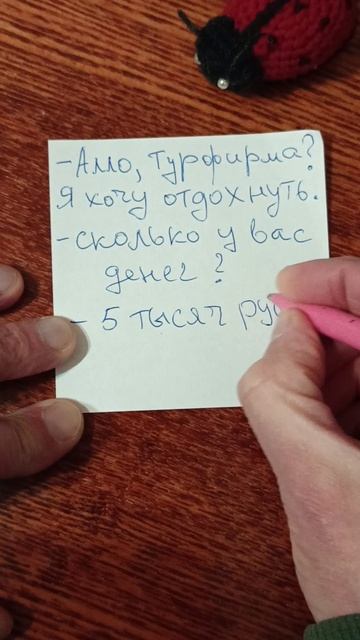 - Алло, турфирма?
Я хочу отдохнуть.
- сколько у вас
денег?
- 5 тысяч